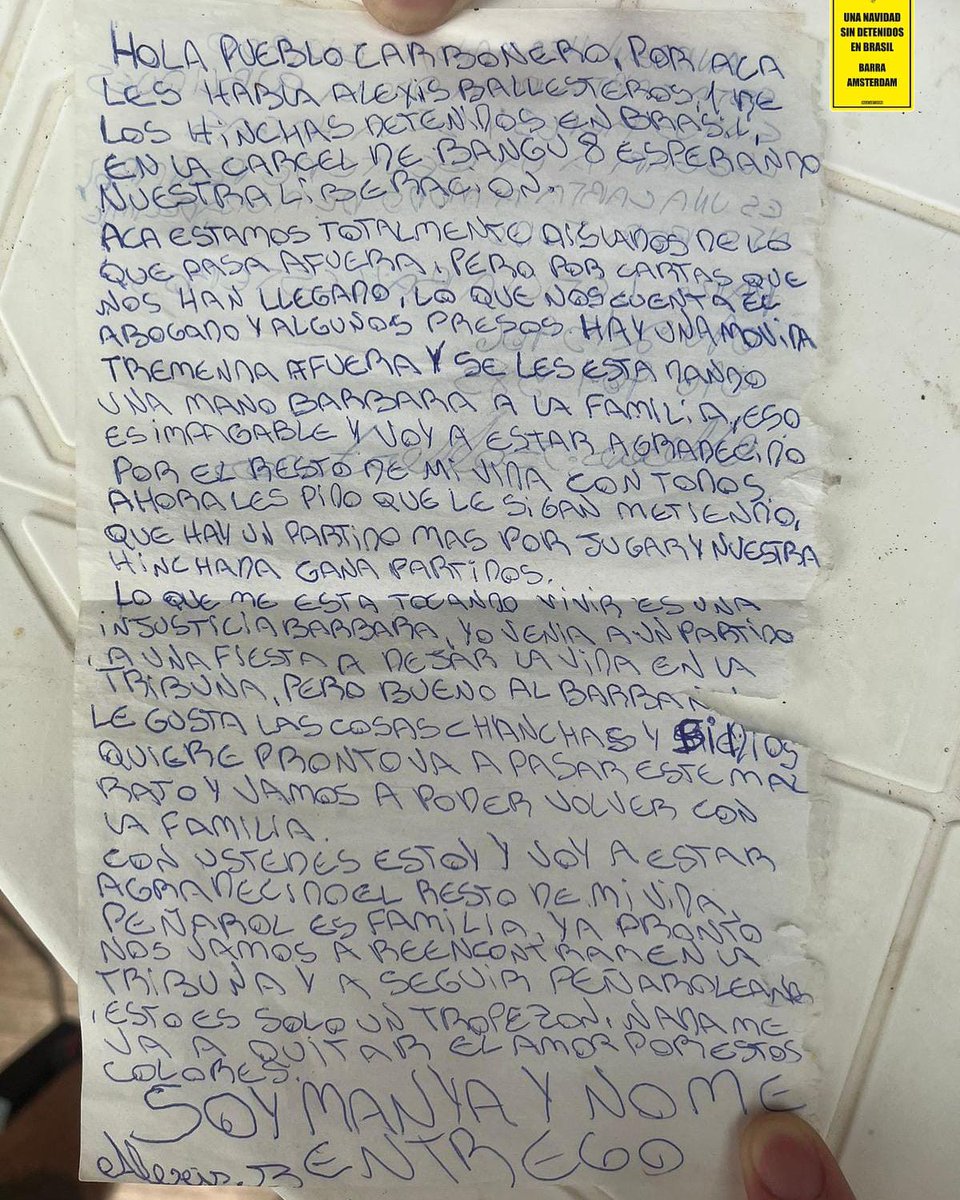 UNA NAVIDAD
SIN DETENIDOS
EN BRASIL
BARRA
AMSTERDAM
HOLA PUEBLO CARBONERO, POR ACA
LES HABLA ALEXIS BALLESTEROS, 1 DE
LOS HINCHAS DETENIDOS EN BRASIL,
EN LA CARCEL DE BANGU 8 ESPERANDO
NUESTRA LIBERACION.
ACA ESTAMOS TOTALMENTO AISLADOS DE LO
QUE PASA AFUERA, PERO POR CARTAS QUE
NOS HAN LLEGADO, LO QUE NOS CUENTA EL
ABOGADO Y ALGUNOS PRESOS HAY UNA MOVIDA
TREMENDA AFUERA Y SE LES ESTA DANDO
UNA MANO BARBARA A LA FAMILIA, ESO
ES IMPAGABLE Y VOY A ESTAR AGRADECIDO
POR EL RESTO DE MI VIDA CON TODOS.
AHORA LES PIDO QUE LE SIGAN METIENDO,
QUE HAY UN PARTIDO MAS POR JUGAR Y NUESTRA
HINCHADA GANA PARTIDOS.
LO QUE ME ESTA TOCANDO VIVIR ES UNA
INJUSTICIA BARBARA, YO VENIA A UN PARTIDO
A UNA FIESTA A DEJAR LA VIDA EN LA
TRIBUNA, PERO BUENO AL BARBA
LE GUSTA LAS COSAS CHANCHAS Y SI DIOS
QUIERE PRONTO VA A PASAR ESTE MAL
RATO Y VAMOS A PODER VOLVER CON
LA FAMILIA.
CON USTEDES ESTOY Y VOY A ESTAR
AGRADECIDO EL RESTO DE MI VIDA
PEÑAROL ES FAMILIA, YA PRONTO
NOS VAMOS A REENCONTRAR EN LA
TRIBUNA Y A SEGUIR PEÑAROLEANDO
ESTO ES SOLO UN TROPEZON, NADA ME
VA A QUITAR EL AMOR POR ESTOS
COLORES.
SOY MANYA Y NO ME
ENTREGO
Alexis. B